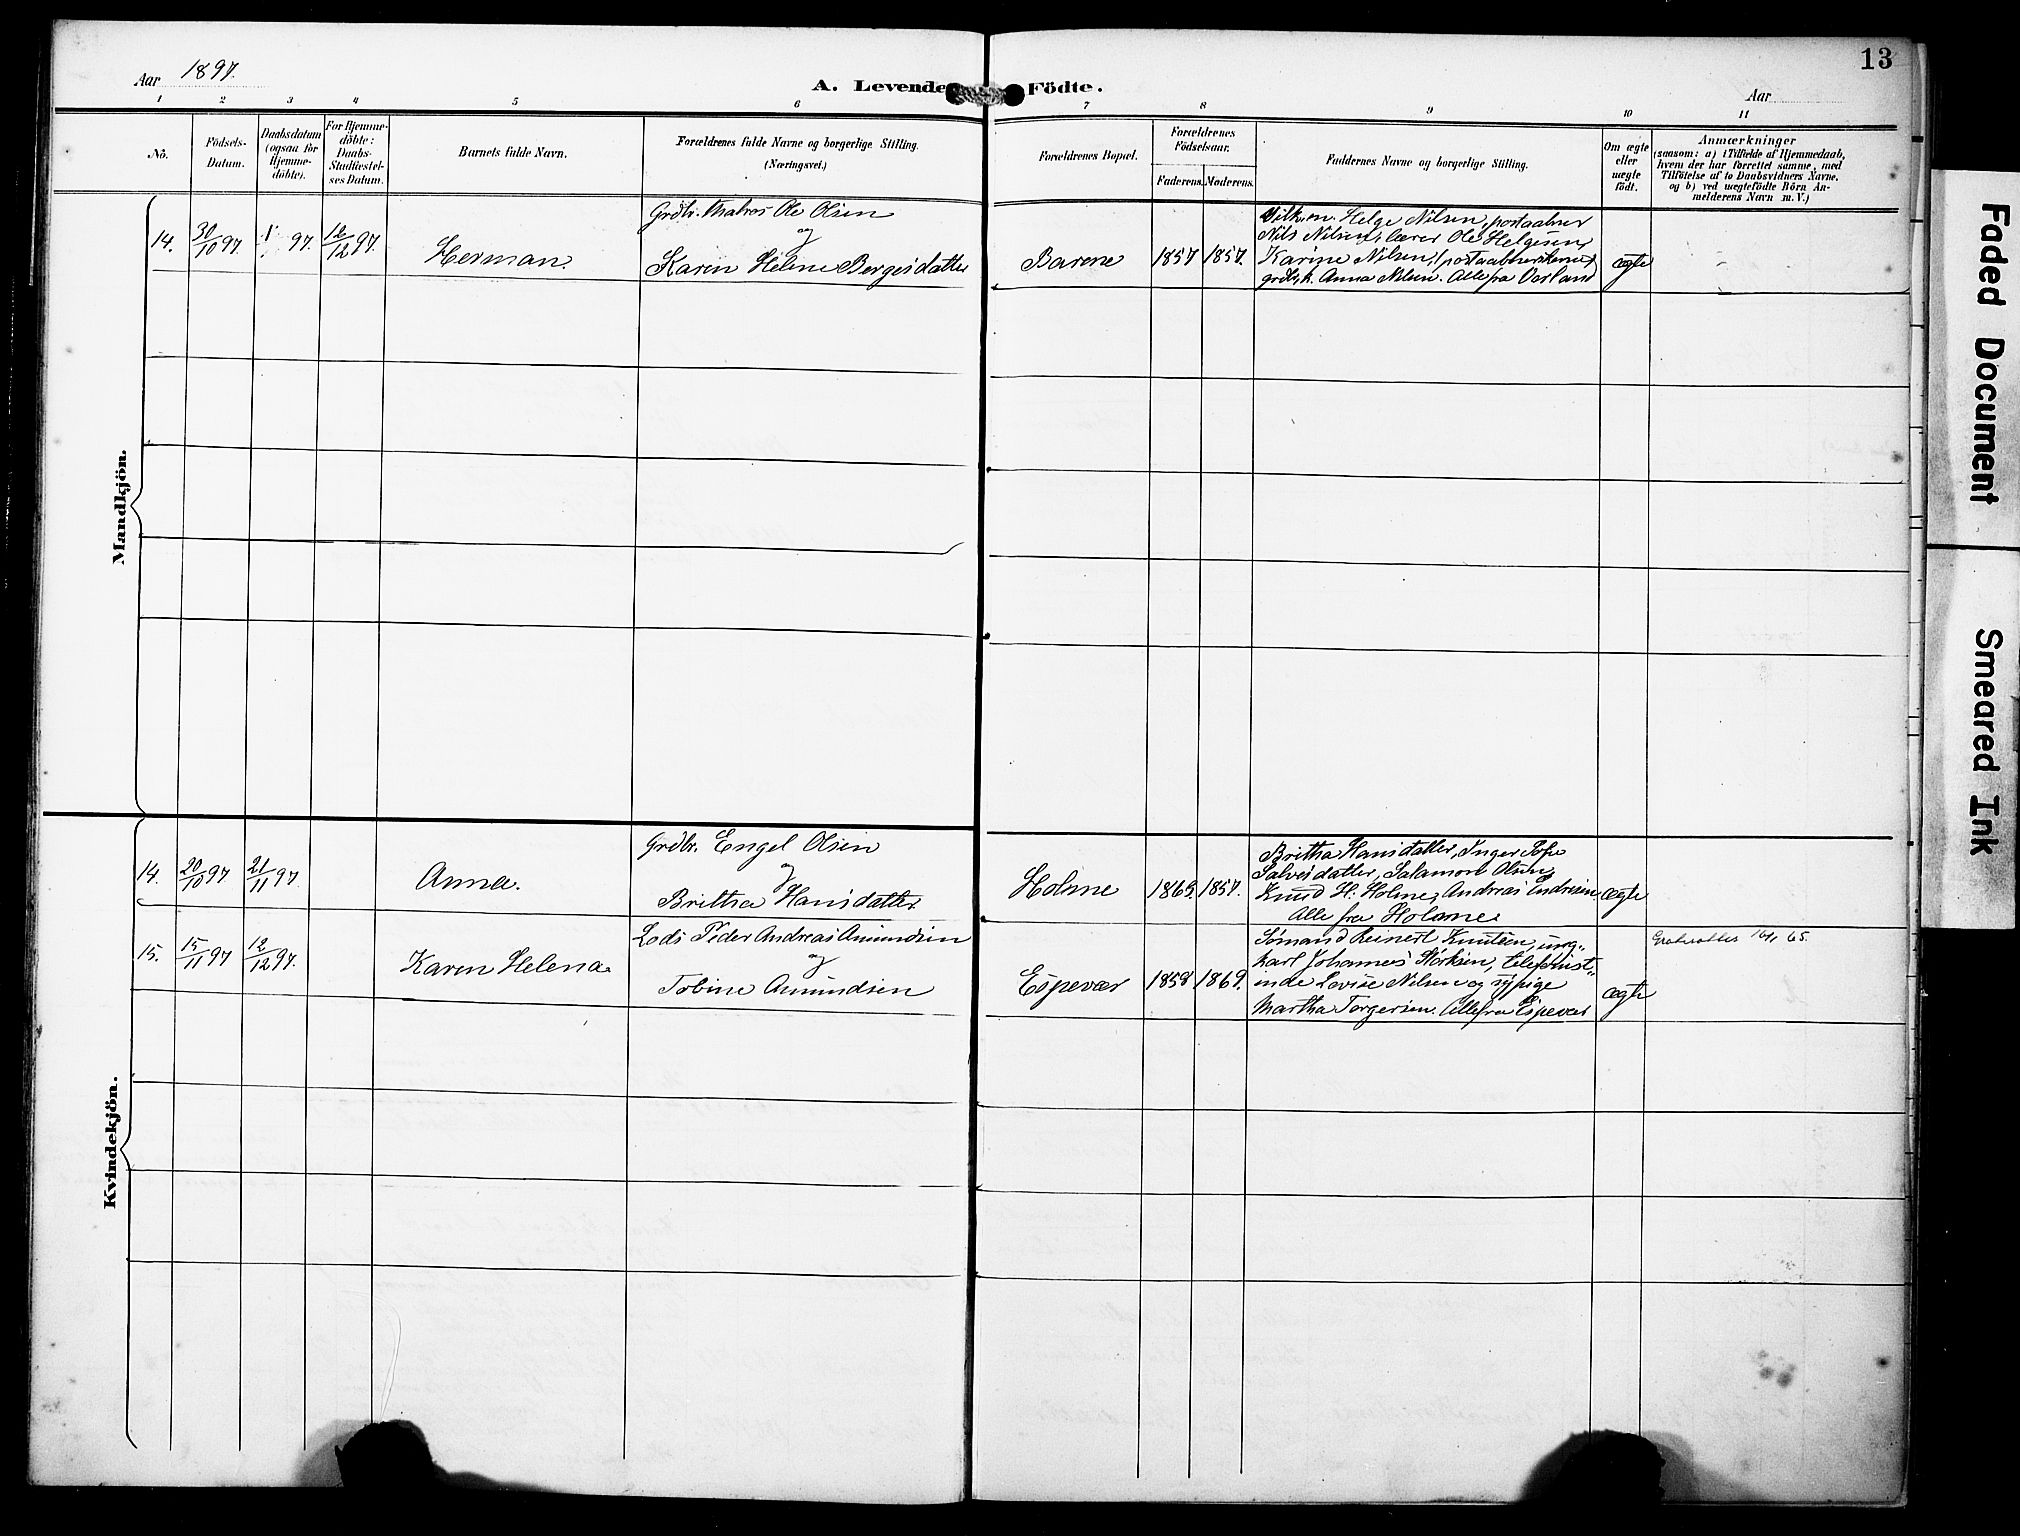 13
Aar 1897.
A. Levende Födte.
Aar
1 2 3 4 5 6 7 8 9 10 11
No.
Födsels-
Datum.
Daabsdatum
(ogsaa for
Hjemme-
döbte).
For Hjemme-
döbte:
Daabs-
Stadfæstel-
ses Datum.
Barnets fulde Navn.
Forældrenes fulde Navne og borgerlige Stilling.
(Næringsvei.)
Forældrenes Bopæl.
Forældrenes
Födselsaar.
Faderens. Moderens.
Faddernes Navne og borgerlige Stilling.
Om ægte
eller
uægte
födt.
Anmærkninger
(saasom: a) i Tilfælde af Hjemmedaab,
hvem der har forrettet samme, med
Tilföielse af to Daabsvidners Navne,
og b) ved uægtefödte Börn An-
melderens Navn m. V.)
Mandkjön.
14.
30/10 97.
97.
12/12 97.
Herman.
Grdbr. Matros Ole Olsen
og
Karen Helene Bergesdatter
Barene
1857
1857.
Helge Nilsen, postaabner
Nils Nilsen, lærer Ole Helgesen,
Karine Nilsen, (postaabnerkone)
grdbr.k. Anna Nilsen. Alle fra
ægte
Kvindekjön.
14.
20/10 97
21/11 97.
Anna.
Grdbr. Engel Olsen
og
Brittha Hansdatter
Holme
1863
1857.
Brittha Hansdatter, Inger Sofie
Salvesdatter, Salamon Olsen,
Knud H. Holme, Andreas Endresen
Alle fra Holome
ægte
15.
15/11 97
12/12 97.
Karen Helena.
Lods Peder Andreas Amundsen
og
Tobine Amundsen
Espevær
1858
1869.
Sømand Reinert Knutsen, ung-
karl Johannes Størksen, telefonist-
inde Lovise Nilsen og sypige
Martha Torgersen. Alle fra Espevær
ægte
65.
Faded Document
Smeared Ink